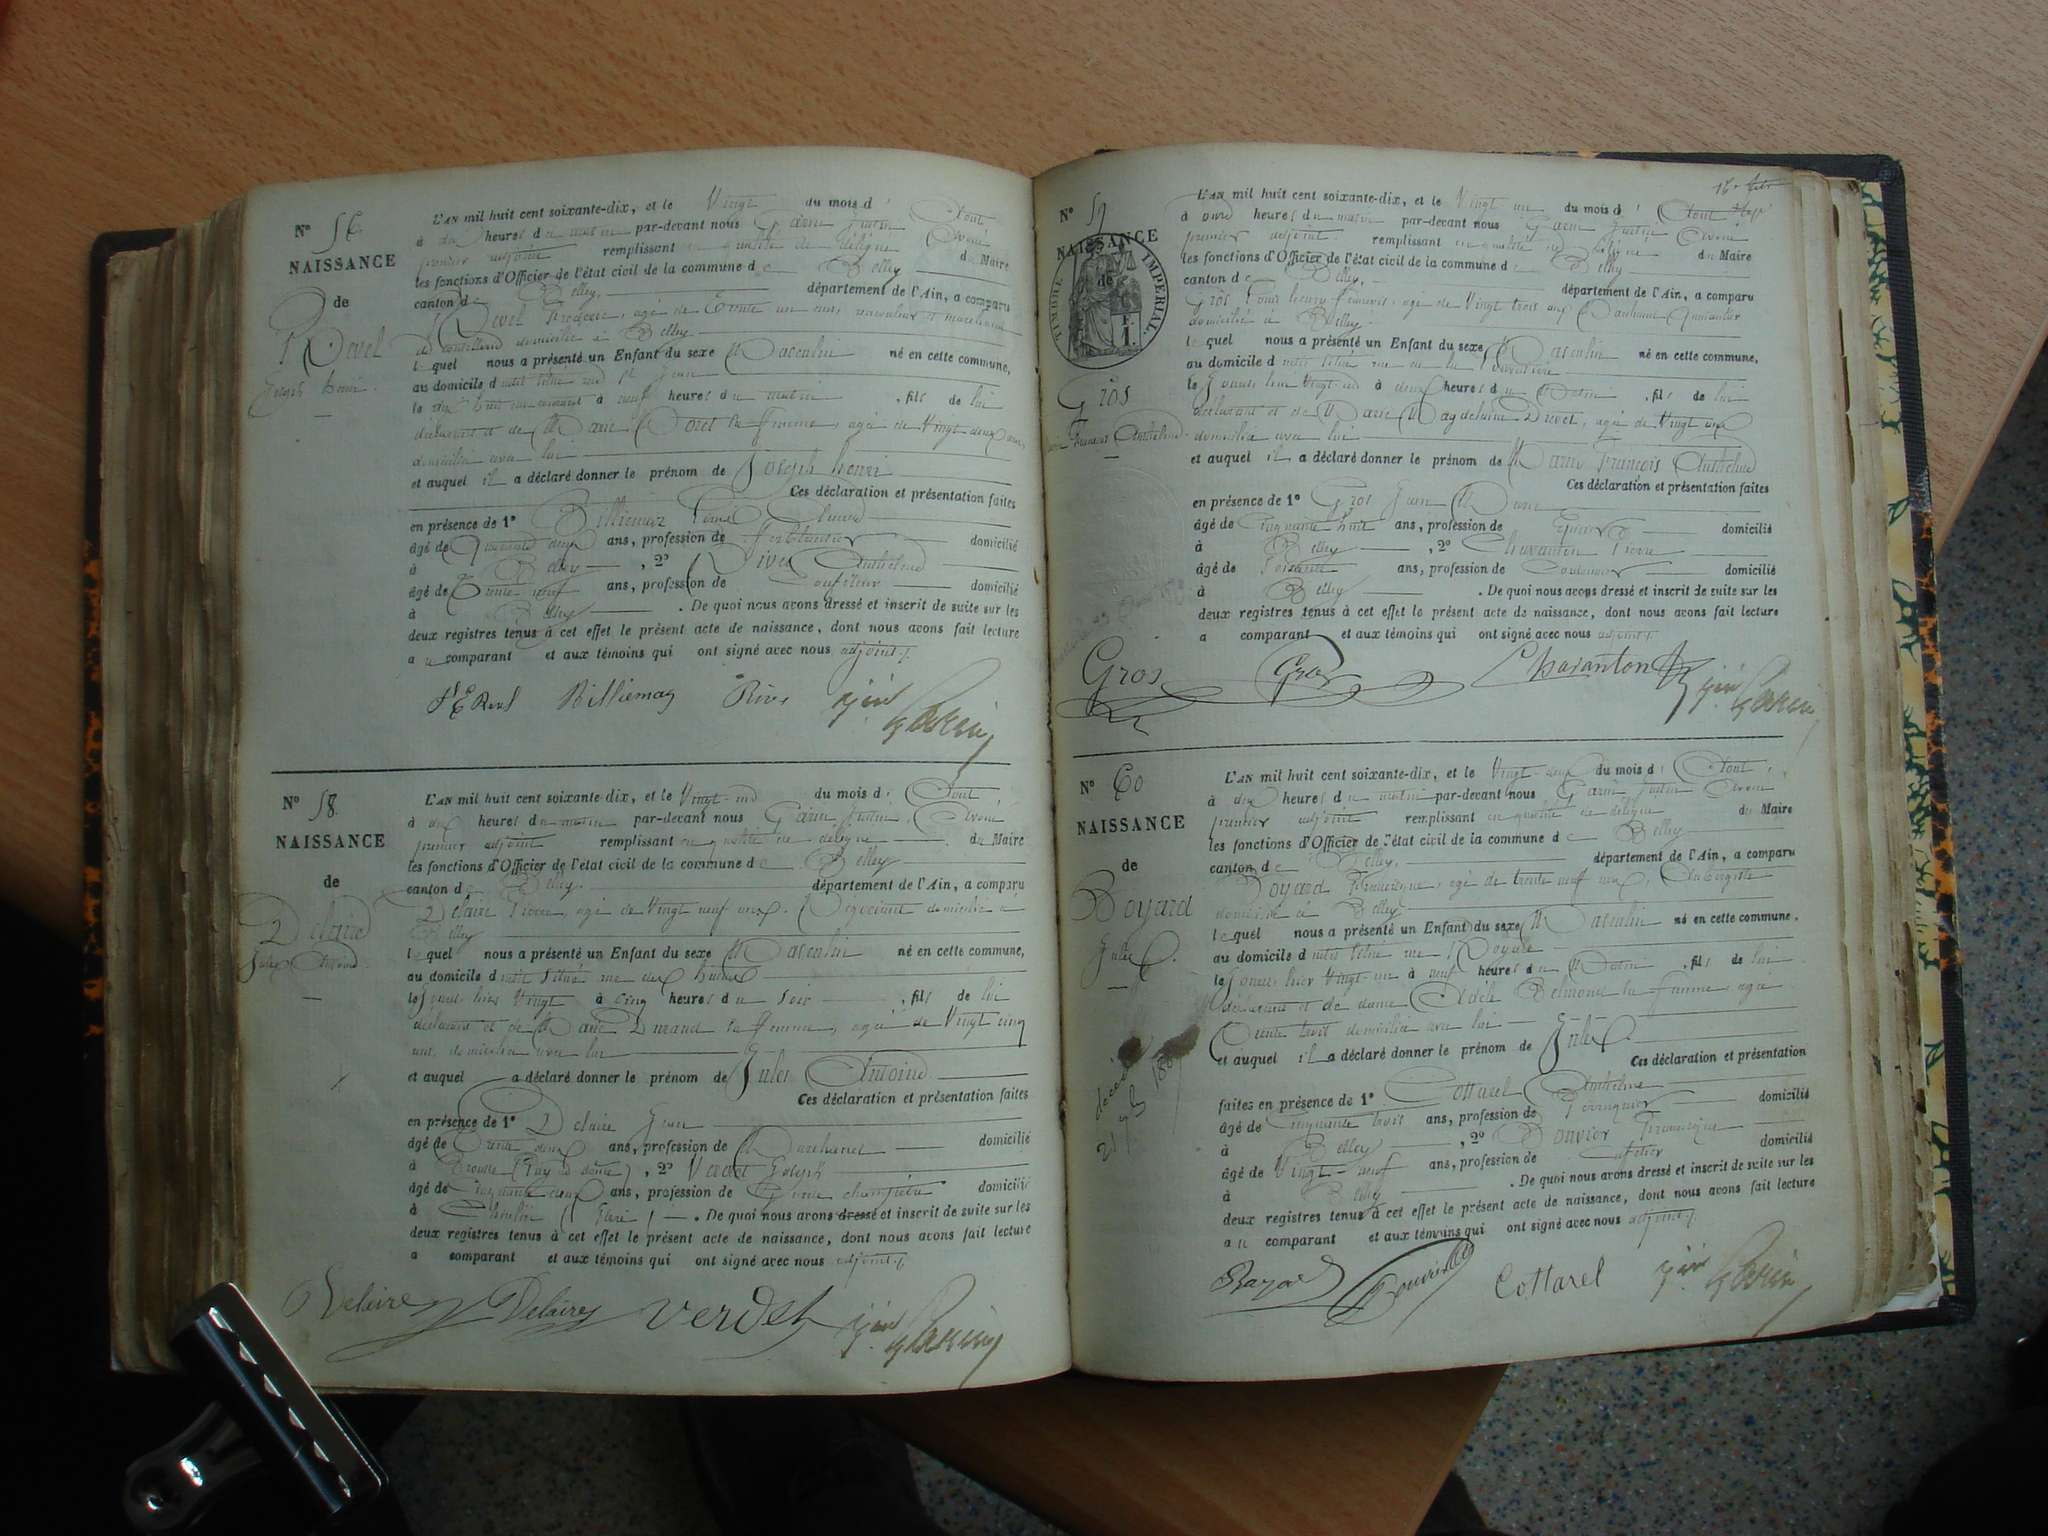 N°
NAISSANCE
de
Revel
Joseph henri.
L'AN mil huit cent soixante-dix, et le Vingt du mois d' Aout
à dix heures du matin par-devant nous Garin Justin Avoué
premier adjoint remplissant en qualité de délégué du Maire
les fonctions d'Officier de l'état civil de la commune de Belley
canton de Belley, département de l'Ain, a comparu
Revel Frédéric, agé de Trente un ans,
domicilié à Belley
lequel nous a présenté un Enfant du sexe Masculin né en cette commune,
au domicile d
le dix huit du courant à neuf heures du matin, fils de lui
déclarant et de Marie sa femme, agée de Vingt deux ans,
domiciliée avec lui
et auquel il a déclaré donner le prénom de Joseph henri
Ces déclaration et présentation faites
en présence de 1° Billiemaz
âgé de Quarante deux ans, profession de domicilié
à Belley, 2° Rive Anthelme
âgé de Trente neuf ans, profession de domicilié
à Belley. De quoi nous avons dressé et inscrit de suite sur les
deux registres tenus à cet effet le présent acte de naissance, dont nous avons fait lecture
au comparant et aux témoins qui ont signé avec nous adjoint ./.
Billiemaz Rive Garin
N° 58.
NAISSANCE
de
Delaire
Jules Antoine
L'AN mil huit cent soixante-dix, et le Vingt-un du mois d' Aout,
à dix heures du matin par-devant nous Garin Justin, Avoué
premier adjoint remplissant en qualité de délégué du Maire
les fonctions d'Officier de l'état civil de la commune de Belley
canton de Belley, département de l'Ain, a comparu
Delaire Pierre, agé de Vingt neuf ans, Négociant domicilié à
Belley
lequel nous a présenté un Enfant du sexe Masculin né en cette commune,
au domicile d situé rue des
le jour hier Vingt à cinq heures du soir, fils de lui
déclarant et de Marie Durand sa femme, agée de Vingt cinq
ans, domiciliée avec lui
et auquel a déclaré donner le prénom de Jules Antoine
Ces déclaration et présentation faites
en présence de 1° Delaire Jean
âgé de Trente deux ans, profession de Marchand domicilié
à Brousse (Puy de dome), 2° Verdet Joseph
âgé de Cinquante deux ans, profession de Garde champêtre domicilié
à. De quoi nous avons dressé et inscrit de suite sur les
deux registres tenus à cet effet le présent acte de naissance, dont nous avons fait lecture
a comparant et aux témoins qui ont signé avec nous adjoint ./.
Delaire Delaire Verdet Garin
N° 59
NAISSANCE
de
TIMBRE IMPERIAL.
1 F.
Gros
Marie Francois Anthelme
L'AN mil huit cent soixante-dix, et le Vingt un du mois d' Aout
à onze heures du matin par-devant nous Garin Justin Avoué
premier adjoint remplissant en qualité de délégué du Maire
les fonctions d'Officier de l'état civil de la commune de Belley
canton de Belley, département de l'Ain, a comparu
Gros Louis henry francois, agé de Vingt trois ans
domicilié à Belley
lequel nous a présenté un Enfant du sexe Masculin né en cette commune,
au domicile d situé rue de la
le Jourd'hui Vingt-un à deux heures du Matin, fils de lui
déclarant et de Marie Magdeleine, agée de Vingt
domiciliée avec lui
et auquel il a déclaré donner le prénom de Marie François Anthelme
Ces déclaration et présentation faites
en présence de 1° Gros Jean Marie
âgé de Cinquante huit ans, profession de Epicier domicilié
à Belley, 2° Charanton Pierre
âgé de Soixante ans, profession de domicilié
à Belley. De quoi nous avons dressé et inscrit de suite sur les
deux registres tenus à cet effet le présent acte de naissance, dont nous avons fait lecture
a comparant et aux témoins qui ont signé avec nous adjoint ./.
Gros Gros Charanton Garin
N° 60
NAISSANCE
de
Boyard
Jules.
décédé
L'AN mil huit cent soixante-dix, et le Vingt-deux du mois d' Aout,
à dix heures du matin par-devant nous Garin Justin Avoué
premier adjoint remplissant en qualité de délégué du Maire
les fonctions d'Officier de l'état civil de la commune de Belley
canton de Belley, département de l'Ain, a comparu
Boyard Francisque, agé de trente neuf ans, Aubergiste
domicilié à Belley
lequel nous a présenté un Enfant du sexe Masculin né en cette commune,
au domicile d situé rue Royale
le Jour hier Vingt-un à neuf heures du Matin, fils de lui
déclarant et de dame Adèle sa femme, agée
Trente trois domiciliée avec lui
et auquel il a déclaré donner le prénom de Jules
Ces déclaration et présentation
faites en présence de 1° Cottarel Anthelme
âgé de Cinquante trois ans, profession de Perruquier domicilié
à Belley, 2° Bouvier Francisque
âgé de Vingt-neuf ans, profession de Cafetier domicilié
à Belley. De quoi nous avons dressé et inscrit de suite sur les
deux registres tenus à cet effet le présent acte de naissance, dont nous avons fait lecture
au comparant et aux témoins qui ont signé avec nous adjoint ./.
Boyard Bouvier Cottarel Garin